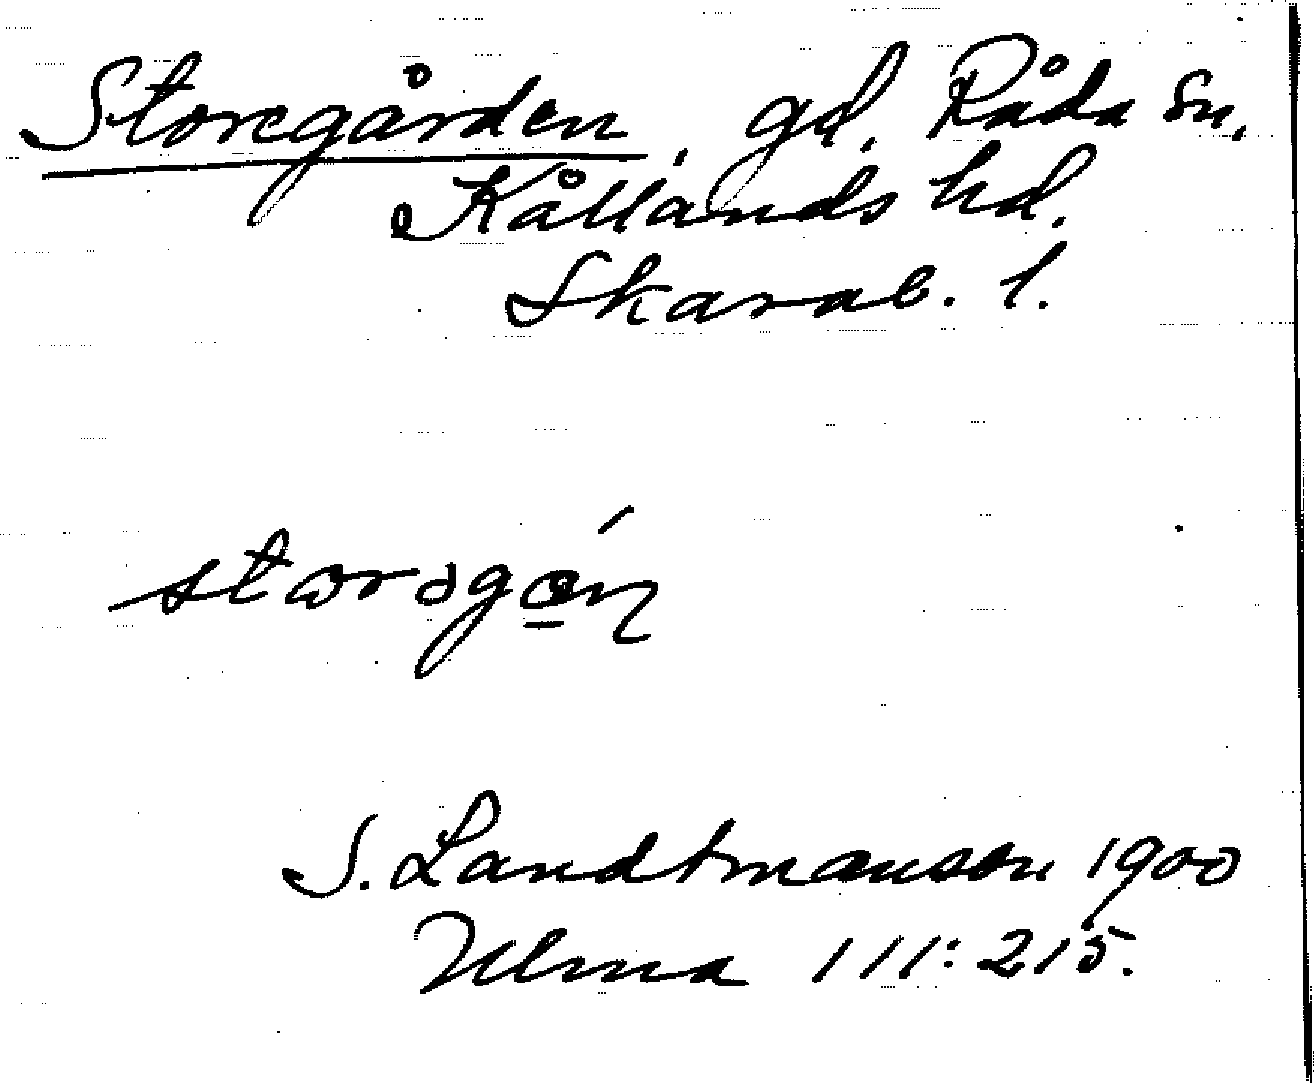 Storegården, gd, Råda sn,
Kållands hd.
Skarab. l.
S. Landtmanson 1900
Ulma 111:215.